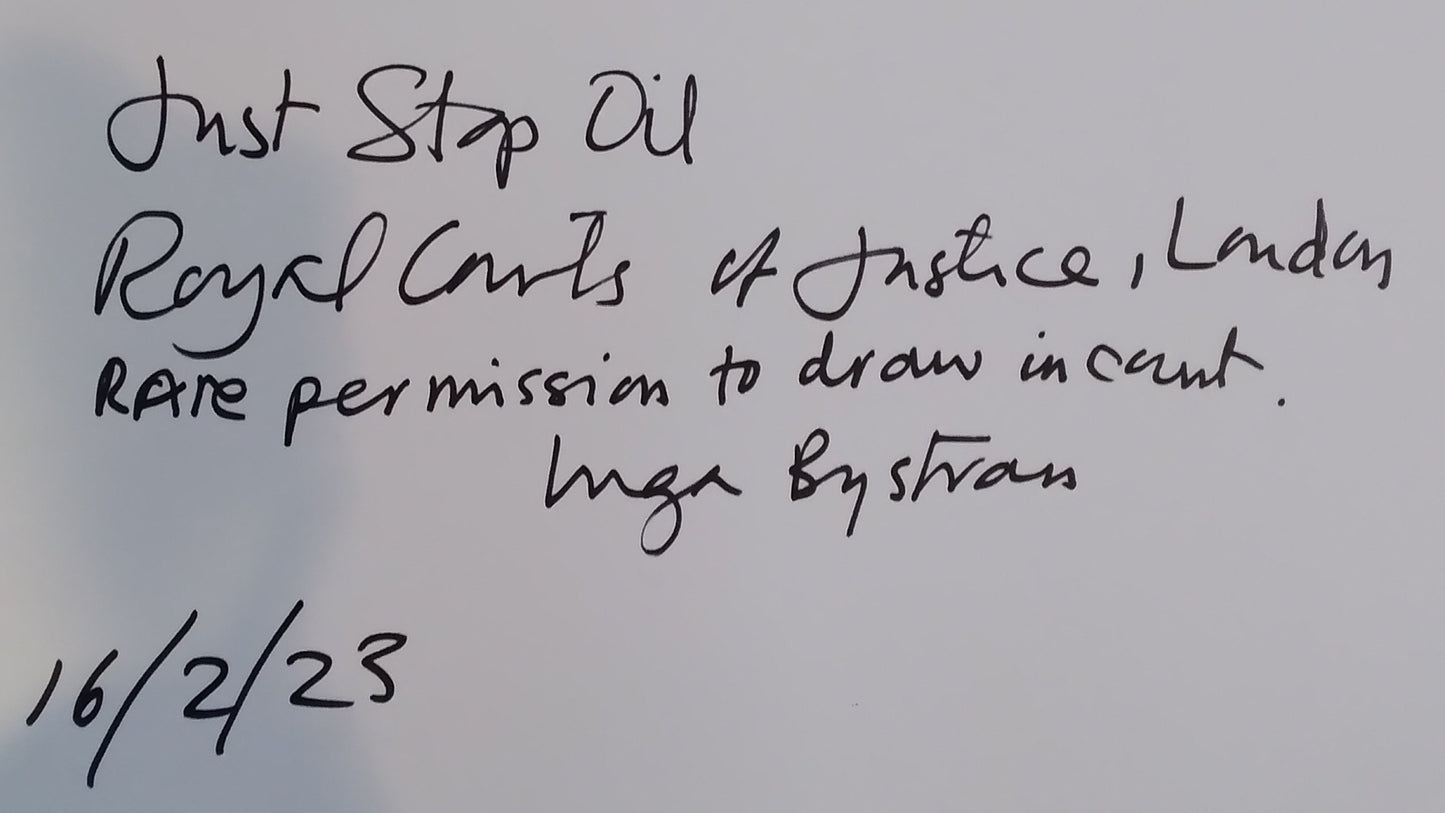 Just Stop Oil
Royal Courts of Justice, London
RARE permission to draw in court.
Inga Bystram
16/2/23